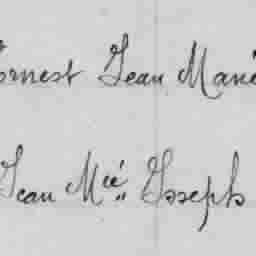 Ernest Jean Marie
Jean Mie „ Joseph